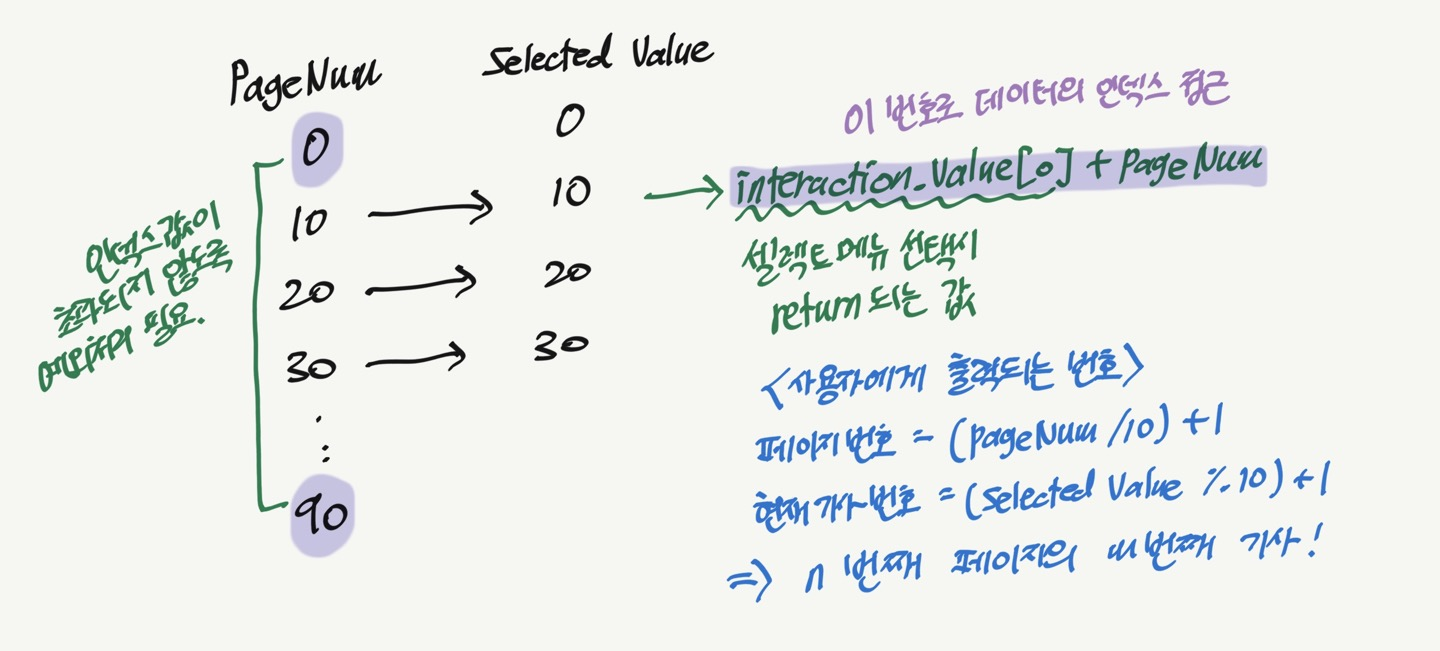 PageNum
Selected Value
0
10
20
30
90
0
10
20
30
인덱스 값이
초과되지 않도록
예외처리 필요.
이 번호로 데이터의 인덱스 접근
interaction.Value[0] + PageNum
셀렉트 메뉴 선택시
return 되는 값
<사용자에게 출력되는 번호>
페이지 번호 = (pageNum /10) +1
현재 기사 번호 = (Selected Value % 10) +1
=> n 번째 페이지의 m번째 기사!